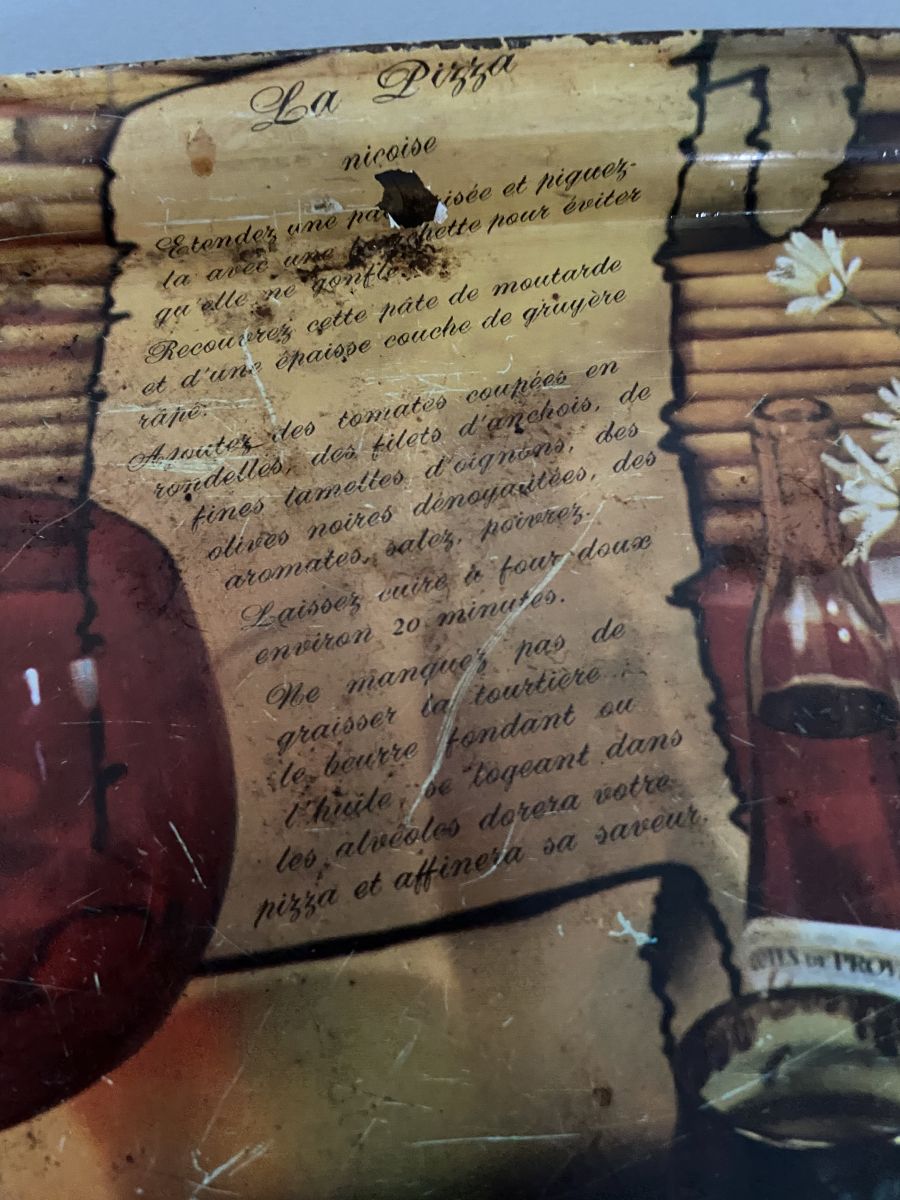 La Pizza
niçoise
Etendez une et piquez-
la avec une pour éviter
qu'elle ne gonfle.
Recouvrez cette pâte de moutarde
et d'une épaisse couche de gruyère
râpé.
Ajoutez des tomates coupées en
rondelles, des filets d'anchois, de
fines lamelles d'oignons, des
olives noires dénoyautées, des
aromates, salez, poivrez.
Laissez cuire à four doux
environ 20 minutes.
Ne manquez pas de
graisser la tourtière :
le beurre fondant ou
l'huile, se logeant dans
les alvéoles dorera votre
pizza et affinera sa saveur.
DE